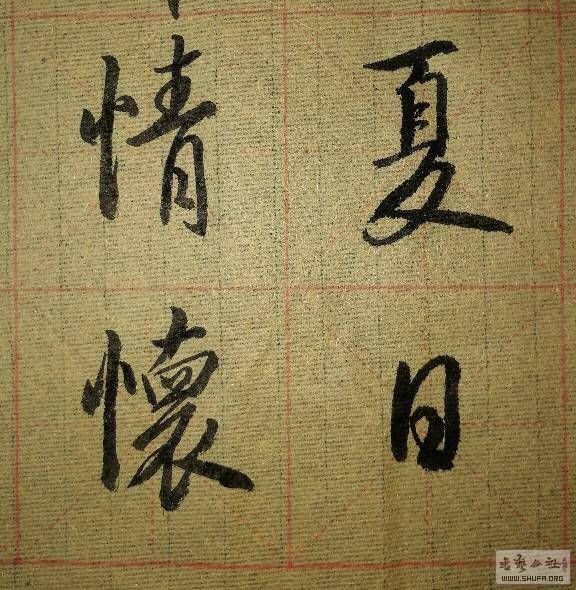 夏日
情懷
書藝公社
WWW.SHUFA.ORG